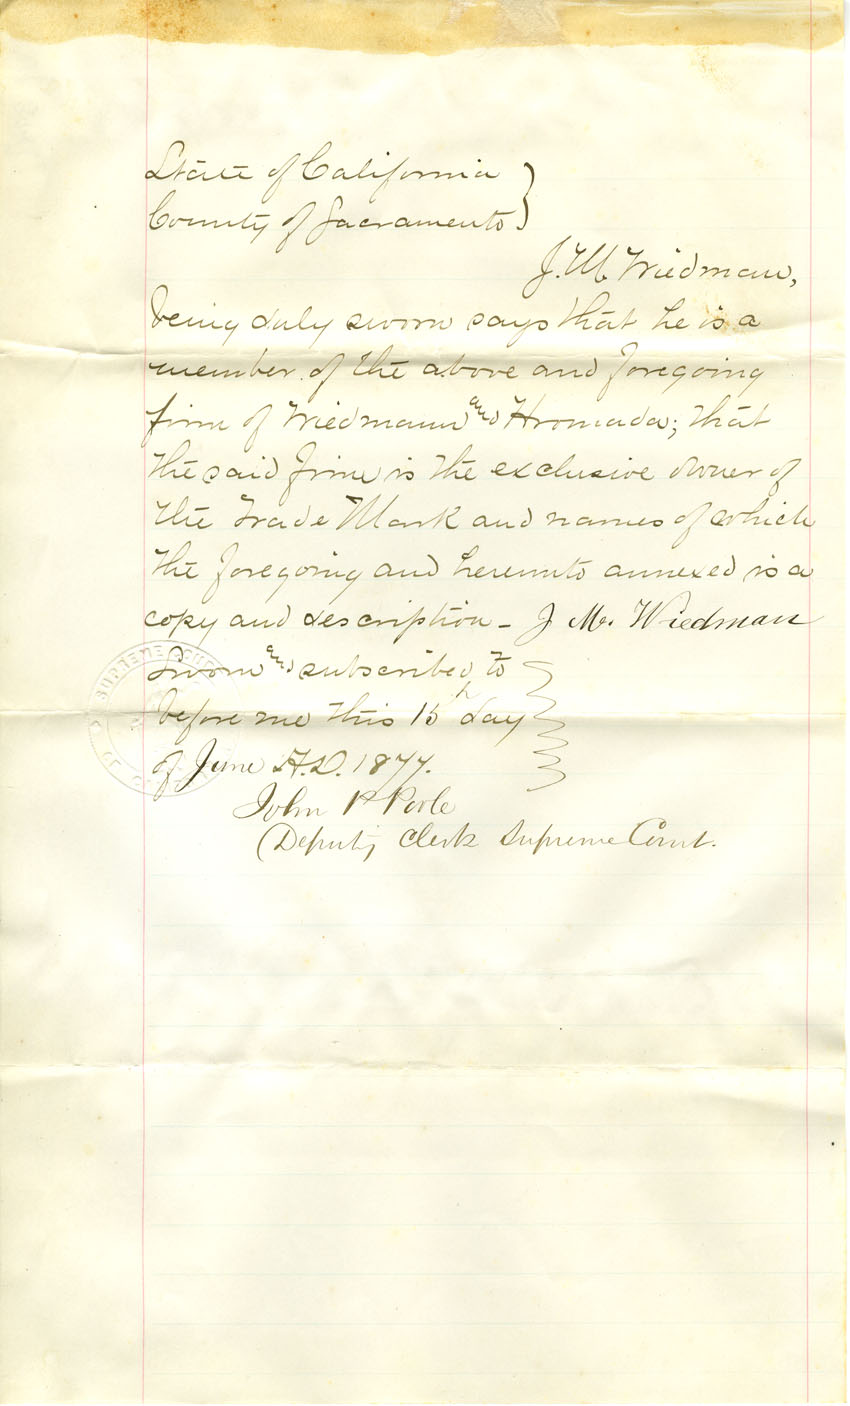 State of California }
County of Sacramento }
J. M. Wiedman,
being duly sworn says that he is a
member of the above and foregoing
firm of Wiedmann and Hromada; that
the said firm is the exclusive owner of
the Trade Mark and names of which
the foregoing and hereunto annexed is a
copy and description - J M. Wiedman
Sworn and subscribed to
before me this 15th day
of June A.D. 1877.
John P Poole
Deputy Clerk Supreme Court.
SUPREME COURT